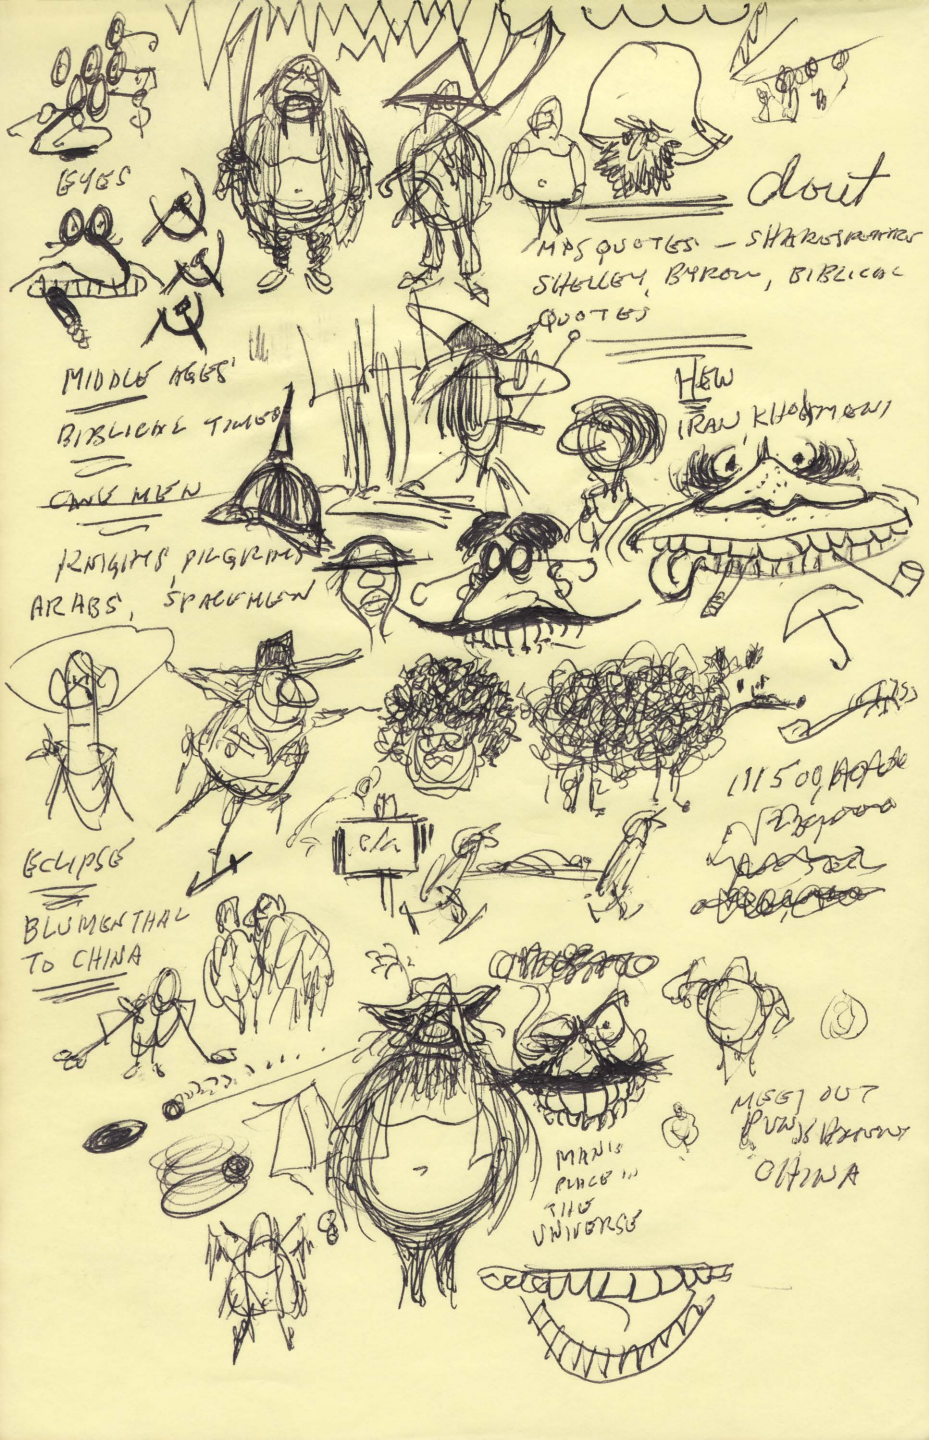 EYES
clout
MPS QUOTES — SHAKESPEARE
SHELLEY, BYRON, BIBLICAL
QUOTES
MIDDLE AGES
BIBLICAL TIMES
CAVE MEN
KNIGHTS, PILGRIMS
ARABS, SPACEMEN
HEW
IRAN, KHOMENI
ECLIPSE
BLUMENTHAL
TO CHINA
MAN'S
PLACE IN
THE
UNIVERSE
MEET OUT
CHINA